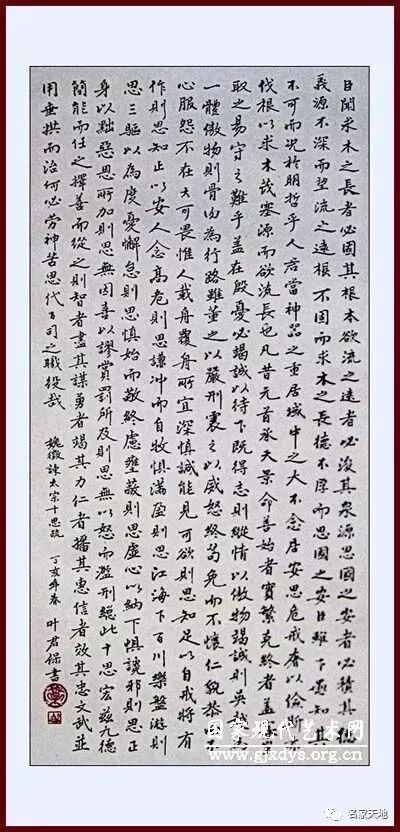 臣聞求木之長者必固其根本欲流之遠者必浚其泉源思國之安者必積其德
義源不深而望流之遠根不固而求木之長德不厚而思國之安臣雖下愚知其
不可而况於明哲乎人君當神器之重居域中之大不念居安思危戒奢以儉斯
伐根以求木茂塞源而欲流長也凡昔元首承天景命善始者實繁克終者蓋寡
取之易守之難乎蓋在殷憂必竭誠以待下既得志則縱情以傲物竭誠則吴越
一體傲物則骨肉為行路雖董之以嚴刑震之以威怒終苟免而不懷仁貌恭不
心服怨不在大可畏惟人載舟覆舟所宜深慎誠能見可欲則思知足以自戒將有
作則思知止以安人念高危則思謙冲而自牧懼滿盈則思江海下百川樂盤游則
思三驅以為度憂懈怠則思慎始而敬終慮壅蔽則思虛心以納下懼讒邪則思正
身以黜惡恩所加則思無因喜以謬賞罰所及則思無以怒而濫刑總此十思宏兹九德
簡能而任之擇善而從之則智者盡其謀勇者竭其力仁者播其惠信者效其忠文武並
用垂拱而治何必勞神苦思代百司之職役哉
魏徵諫太宗十思疏 丁亥年春 叶君保書
国家现代艺术网
www.gjxdys.org.cn
名家天地